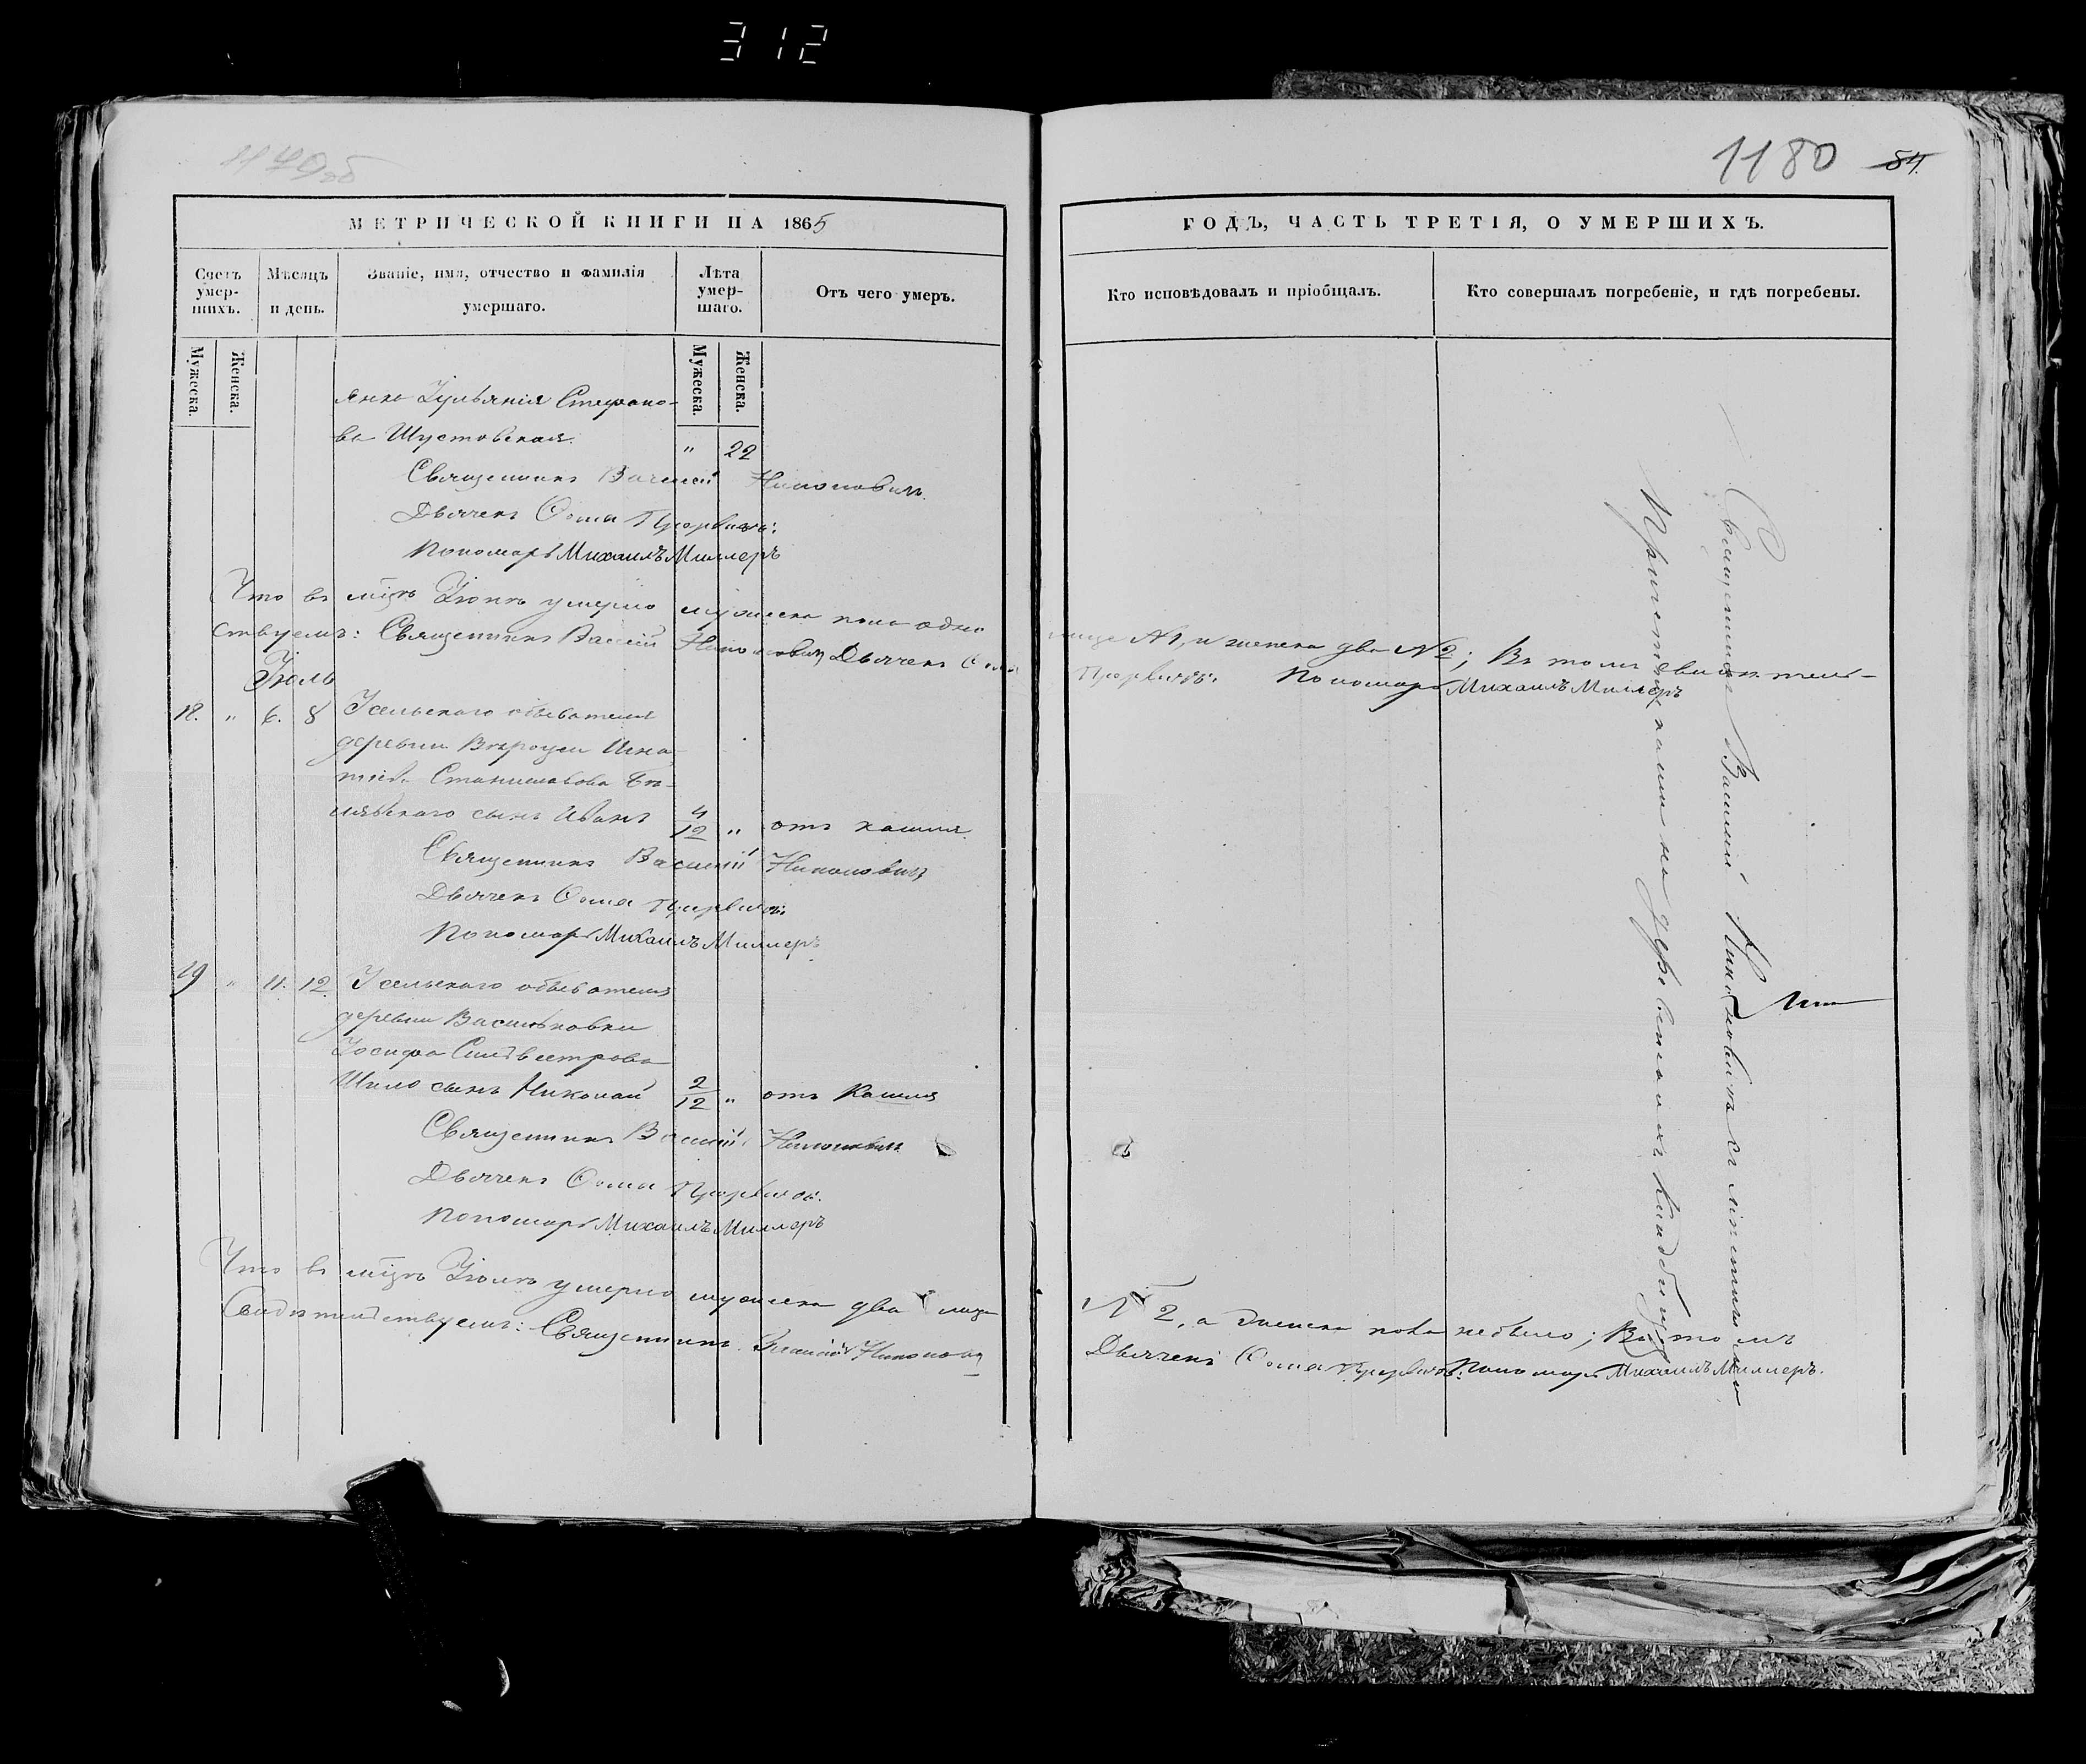 312
1179об
1180 84.
МЕТРИЧЕСКОЙ КНИГИ НА 1865
ГОДЪ, ЧАСТЬ ТРЕТІЯ, О УМЕРШИХЪ.
Счетъ умер-шихъ.
Мѣсяцъ и день.
Званіе, имя, отчество и фамилія умершаго.
Лѣта умер-шаго.
Отъ чего умеръ.
Кто исповѣдовалъ и пріобщалъ.
Кто совершалъ погребеніе, и гдѣ погребены.
Мужеска. Женска.
Мужеска. Женска.
янка Іульянія Стефано-
ва Шустовская. " 22
Священникъ Василій Никоновичъ
Дьячекъ Ѳома
Пономарь Михаилъ Миллеръ
Что въ мцѣ Іюнѣ умерло мужеска пола одно
лице №1, и женска два №2; Въ томъ свидѣтель-
ствуемъ: Священникъ Василій Никоновичъ Дьячекъ Ѳома
Пономарь Михаилъ Миллеръ
Іюль
18. " 6. 8 Усельскаго обывателя
деревни Игна-
тія Станиславова Бѣ-
скаго сынъ Иванъ 4/12 " отъ кашля.
Священникъ Василій Никоновичъ
Дьячекъ Ѳома
Пономарь Михаилъ Миллеръ
19 " 11. 12. Усельскаго обывателя
деревни Васильковки
Іосифа Сильвестрова
Шило сынъ Николай 2/12 " отъ Кашля
Священникъ Василій Никоновичъ
Дьячекъ Ѳома
Пономарь Михаилъ Миллеръ
Что въ мцѣ Іюлѣ умерло мужеска два лица
№ 2, а женска пола небыло; Въ томъ
Свидѣтельствуемъ: Священникъ Василій Никоновичъ
Дьячекъ Ѳома Пономарь Михаилъ Миллеръ.
Священникъ Василій Никоновичъ съ мѣстнымъ
на деревенскомъ кладбищѣ